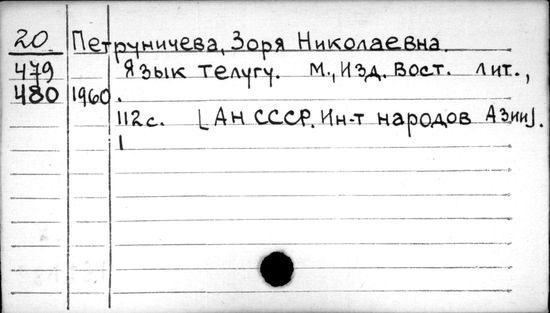 20. Петруничева, Зоря Николаевна.
479 Язык телугу. М., Изд. Вост. лит.,
480 1960.
112 с. [АН СССР. Ин-т народов Азии].
1